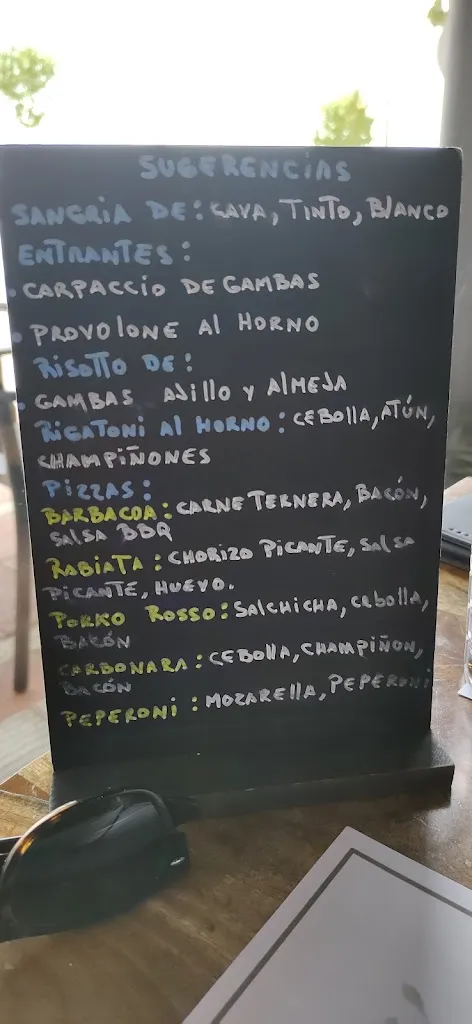 SUGERENCIAS
SANGRIA DE: CAVA, TINTO, BLANCO
ENTRANTES:
• CARPACCIO DE GAMBAS
• PROVOLONE AL HORNO
RISOTTO DE:
• GAMBAS AJILLO Y ALMEJA
RIGATONI AL HORNO: CEBOLLA, ATÚN,
CHAMPIÑONES
PIZZAS:
BARBACOA: CARNE TERNERA, BACÓN,
SALSA BBQ
RABIATA: CHORIZO PICANTE, SALSA
PICANTE, HUEVO.
PORKO ROSSO: SALCHICHA, CEBOLLA,
BACÓN
CARBONARA: CEBOLLA, CHAMPIÑON,
BACÓN
PEPERONI: MOZARELLA, PEPERONI